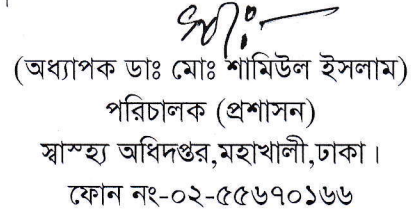 (অধ্যাপক ডাঃ মোঃ শামিউল ইসলাম)
পরিচালক (প্রশাসন)
স্বাস্হ্য অধিদপ্তর,মহাখালী,ঢাকা।
ফোন নং-০২-৫৫৬৭০১৬৬